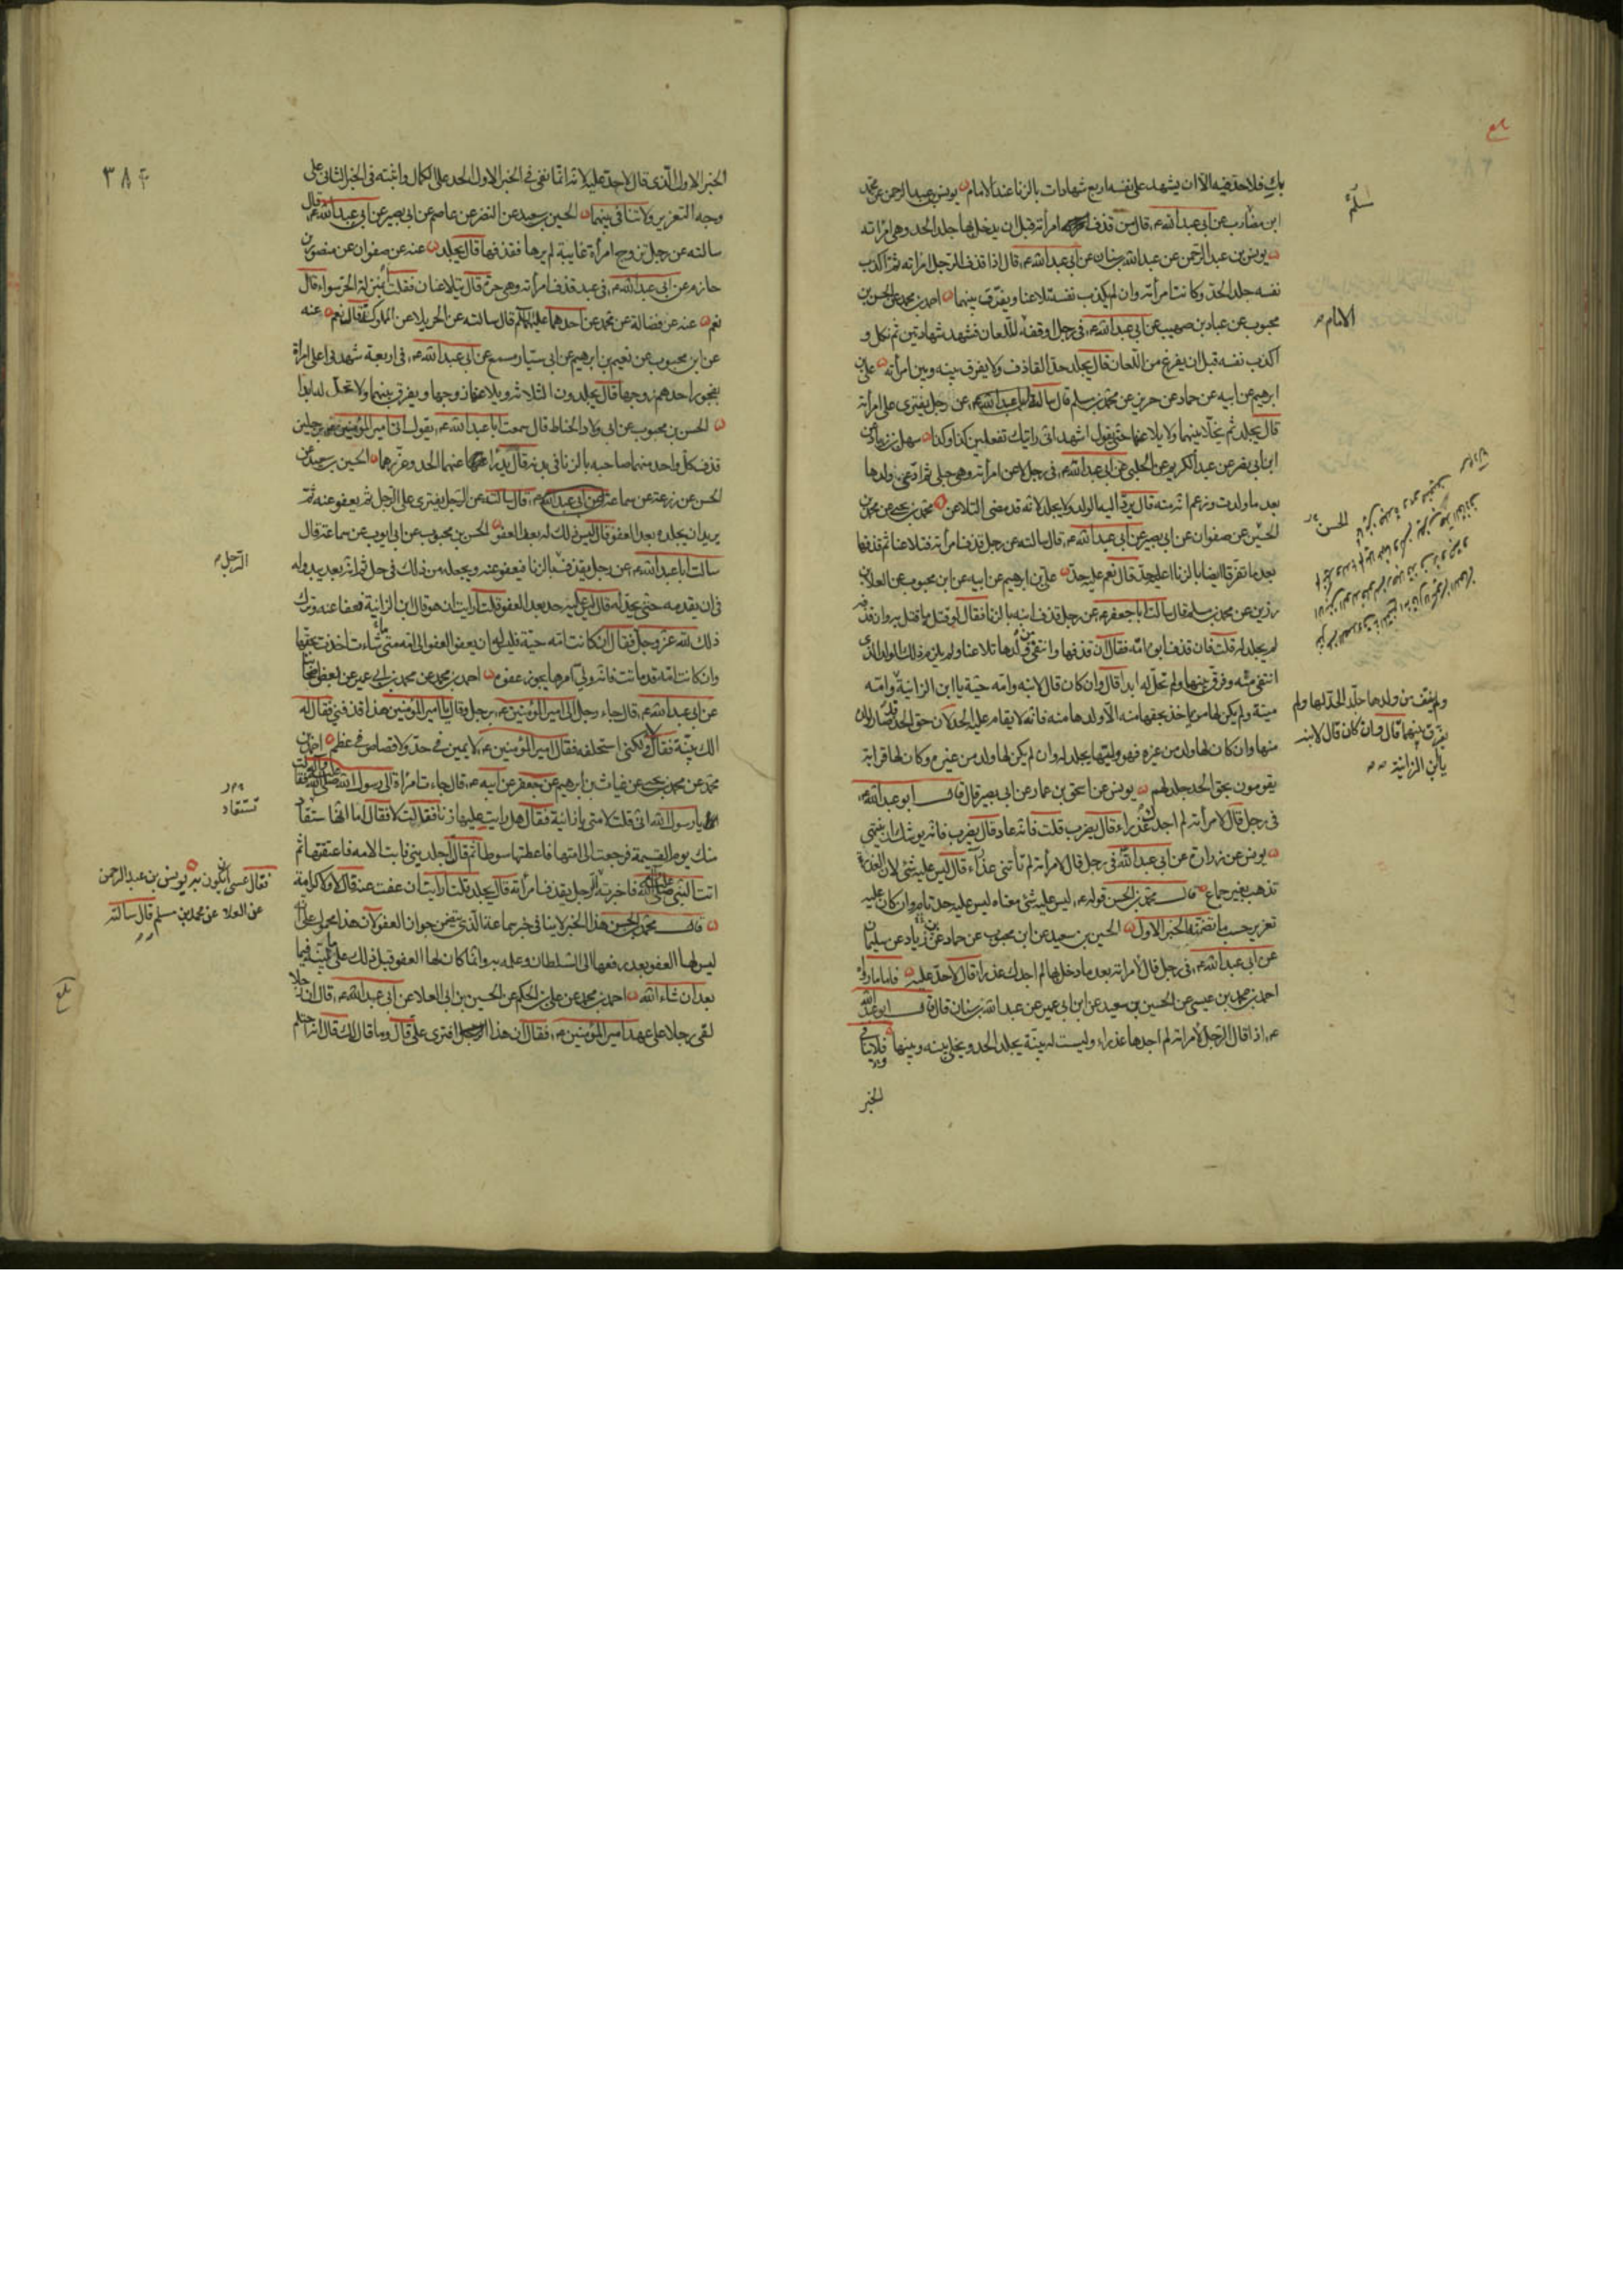 بابك فلا حد فيه الا ان يشهد على نفسه اربع شهادات بالزنا عند الامام يونس بن عبد الرحمن عن محمد
ابن مضارب عن ابي عبد الله ع قال من قذف امرأته قبل ان يدخل بها جلد الحد وهي امراته
يونس بن عبد الرحمن عن عبد الله بن سنان عن ابي عبد الله ع قال اذا قذف الرجل امراته ثم اكذب
نفسه جلد الحد وكانت امرأته وان لم يكذب نفسه تلاعنا ويفرق بينهما احمد بن محمد عن الحسن بن
محبوب عن عباد بن صهيب عن ابي عبد الله ع في رجل اوقفه للعان فشهد شهادتين ثم نكل و
اكذب نفسه قبل ان يفرغ من اللعان قال يجلد حد القاذف ولا يفرق بينه وبين امرأته علي بن
ابرهيم عن ابيه عن حماد عن حريز عن محمد بن مسلم قال سالت ابا عبد الله ع عن رجل يفتري على امراته
قال يجلد ثم يخلا بينهما ولا يلاعنها حتى يقول اشهد اني رايتك تفعلين كذا وكذا سهل بن زياد عن
ابن ابي نصر عن عبد الكريم عن الحلبي عن ابي عبد الله ع في رجل لاعن امرأته وهي حبلى ثم ادعى ولدها
بعد ما ولدت وزعم انه منه قال يرد اليه الولد ولا يجلد لانه قد مضى التلاعن محمد بن يحيى عن محمد بن
الحسين عن صفوان عن ابي بصير عن ابي عبد الله ع قال سالته عن رجل قذف امرأته فتلاعنا ثم قذفها
بعد ما تفرقا ايضا بالزنا اعليه حد قال نعم عليه حد علي بن ابرهيم عن ابيه عن ابن محبوب عن العلا بن
رزين عن محمد بن مسلم قال سالت ابا جعفر ع عن رجل قذف ابنه بالزنا فقال لو قتله ما قتل به وان قذفه
لم يجلد له قلت فان قذف ابوه امه فقال ان قذفها وانتفى من ولدها تلاعنا ولم يلزم ذلك الولد الذي
انتفى منه وفرق بينهما ولم تحل له ابدا قال وان كان قال لابنه وامه حية يا ابن الزانية وامه
ميتة ولم يكن لها من ياخذ بحقها منه الا ولدها منه فانه لا يقام عليه الحد لان حق الحد قد صار لولده
منها وان كان لها ولد من غيره فهو وليها يجلد له وان لم يكن لها ولد من غيره وكان لها قرابة
يقومون بحق الحد جلد لهم يونس عن اسحق بن عمار عن ابي بصير قال قال ابو عبد الله ع
في رجل قال لامرأته لم اجدك عذراء قال يضرب قلت فانه عاد قال يضرب فانه يوشك ان ينتهي
يونس عن زرارة عن ابي عبد الله ع في رجل قال لامرأته لم تأتني عذراء قال ليس عليه شئ لان العذرة
تذهب بغير جماع قال محمد بن الحسن قوله ع ليس عليه شئ معناه ليس عليه حد تام وان كان عليه
تعزير حسب ما تضمنه الخبر الاول الحسين بن سعيد عن ابن محبوب عن حماد عن زياد بن سليمان
عن ابي عبد الله ع في رجل قال لامراته بعد ما دخل بها لم اجدك عذراء قال لا حد عليه فاما ما رواه
احمد بن محمد بن عيسى عن الحسين بن سعيد عن ابن ابي عمير عن عبد الله بن سنان قال قال ابو عبد الله
ع اذا قال الرجل لامراته لم اجدها عذراء وليست له بينة يجلد الحد ويخلى بينه وبينها فلا ينافي
الخبر
الامام
الحسن
ولم ينتف من ولدها جلد الحد لها ولم
يفرق بينهما قال وان كان قال لابنه
يا ابن الزانية
٣٨٤
الخبر الاول الذي قال لا حد عليه لانه انما نفى في الخبر الاول الحد على الكمال واثبته في الخبر الثاني على
وجه التعزير ولا تنافي بينهما الحسين بن سعيد عن النضر عن عاصم عن ابي بصير عن ابي عبد الله ع قال
سالته عن رجل تزوج امرأة غايبة لم يرها فقذفها قال يجلد عنه عن صفوان عن منصور بن
حازم عن ابي عبد الله ع في عبد قذف امرأته وهي حرة قال يتلاعنان فقلت ابمنزلة الحر سواء قال
نعم عنه عن فضالة عن محمد عن احدهما عليهما السلم قال سالته عن الحر يلاعن المملوكة قال نعم عنه
عن ابن محبوب عن نعيم بن ابرهيم عن ابي سيار مسمع عن ابي عبد الله ع في اربعة شهدوا على امرأة
بفجور احدهم زوجها قال يجلدون الثلاثة ويلاعنها زوجها ويفرق بينهما ولا تحل له ابدا
الحسن بن محبوب عن ابي ولاد الحناط قال سمعت ابا عبد الله ع يقول اتي امير المؤمنين ع برجلين
قذف كل واحد منهما صاحبه بالزنا في بدنه قال فدرأ عنهما الحد وعزرهما الحسين بن سعيد عن
الحسن عن زرعة عن سماعة عن ابي عبد الله ع قال سالته عن الرجل يفتري على الرجل ثم يعفو عنه ثم
يريد ان يجلده بعد العفو قال ليس ذلك له بعد العفو الحسن بن محبوب عن ابي ايوب عن سماعة قال
سالت ابا عبد الله ع عن رجل يقذف بالزنا فيعفو عنه ويجعله من ذلك في حل ثم انه بعد يبدو له
في ان يقدمه حتى يجلد له قال ليس عليه حد بعد العفو قلت ارايت ان هو قال يا ابن الزانية فعفا عنه وترك
ذلك لله عز وجل فقال ان كانت امه حية فليس له ان يعفو العفو الى امه متى شاءت اخذت بحقها
وان كانت امه قد ماتت فانه ولي امرها يجوز عفوه احمد بن محمد عن محمد بن ابي عمير عن بعض اصحابنا
عن ابي عبد الله ع قال جاء رجل الى امير المؤمنين ع برجل وقال يا امير المؤمنين هذا قذفني فقال له
الك بينة فقال لا ولكن استحلفه فقال امير المؤمنين ع لا يمين في حد ولا قصاص في عظم احمد بن
محمد عن محمد بن يحيى عن غياث بن ابرهيم عن جعفر عن ابيه ع قال جاءت امرأة الى رسول الله صلى الله عليه وآله فقالت
يا رسول الله اني قلت لامتي يا زانية فقال هل رايت عليها زنا فقالت لا فقال اما انها ستقاد
منك يوم القيمة فرجعت الى امتها فاعطتها سوطا ثم قالت اجلديني فابت الامه فاعتقتها ثم
اتت النبي صلى الله عليه وآله فاخبرته الرجل يقذف امرأته قال يجلد قلت ارايت ان عفت عنه قال لا ولا كرامة
قال محمد بن الحسن هذا الخبر لا ينافي خبر سماعة الذي يتضمن جواز العفو لان هذا محمول على انه
ليس لها العفو بعد رفعها الى السلطان وعلمه به وانما كان لها العفو قبل ذلك على ما نبينه فيما
بعد ان شاء الله احمد بن محمد عن علي بن الحكم عن الحسين بن ابي العلا عن ابي عبد الله ع قال ان رجلا
لقى رجلا على عهد امير المؤمنين ع فقال ان هذا افترى علي قال وما قال لك قال انه احتلم
الرجل
تستقاد
فقال عسى ان يكون به يونس بن عبد الرحمن
عن العلا عن محمد بن مسلم قال سالته
بلغ